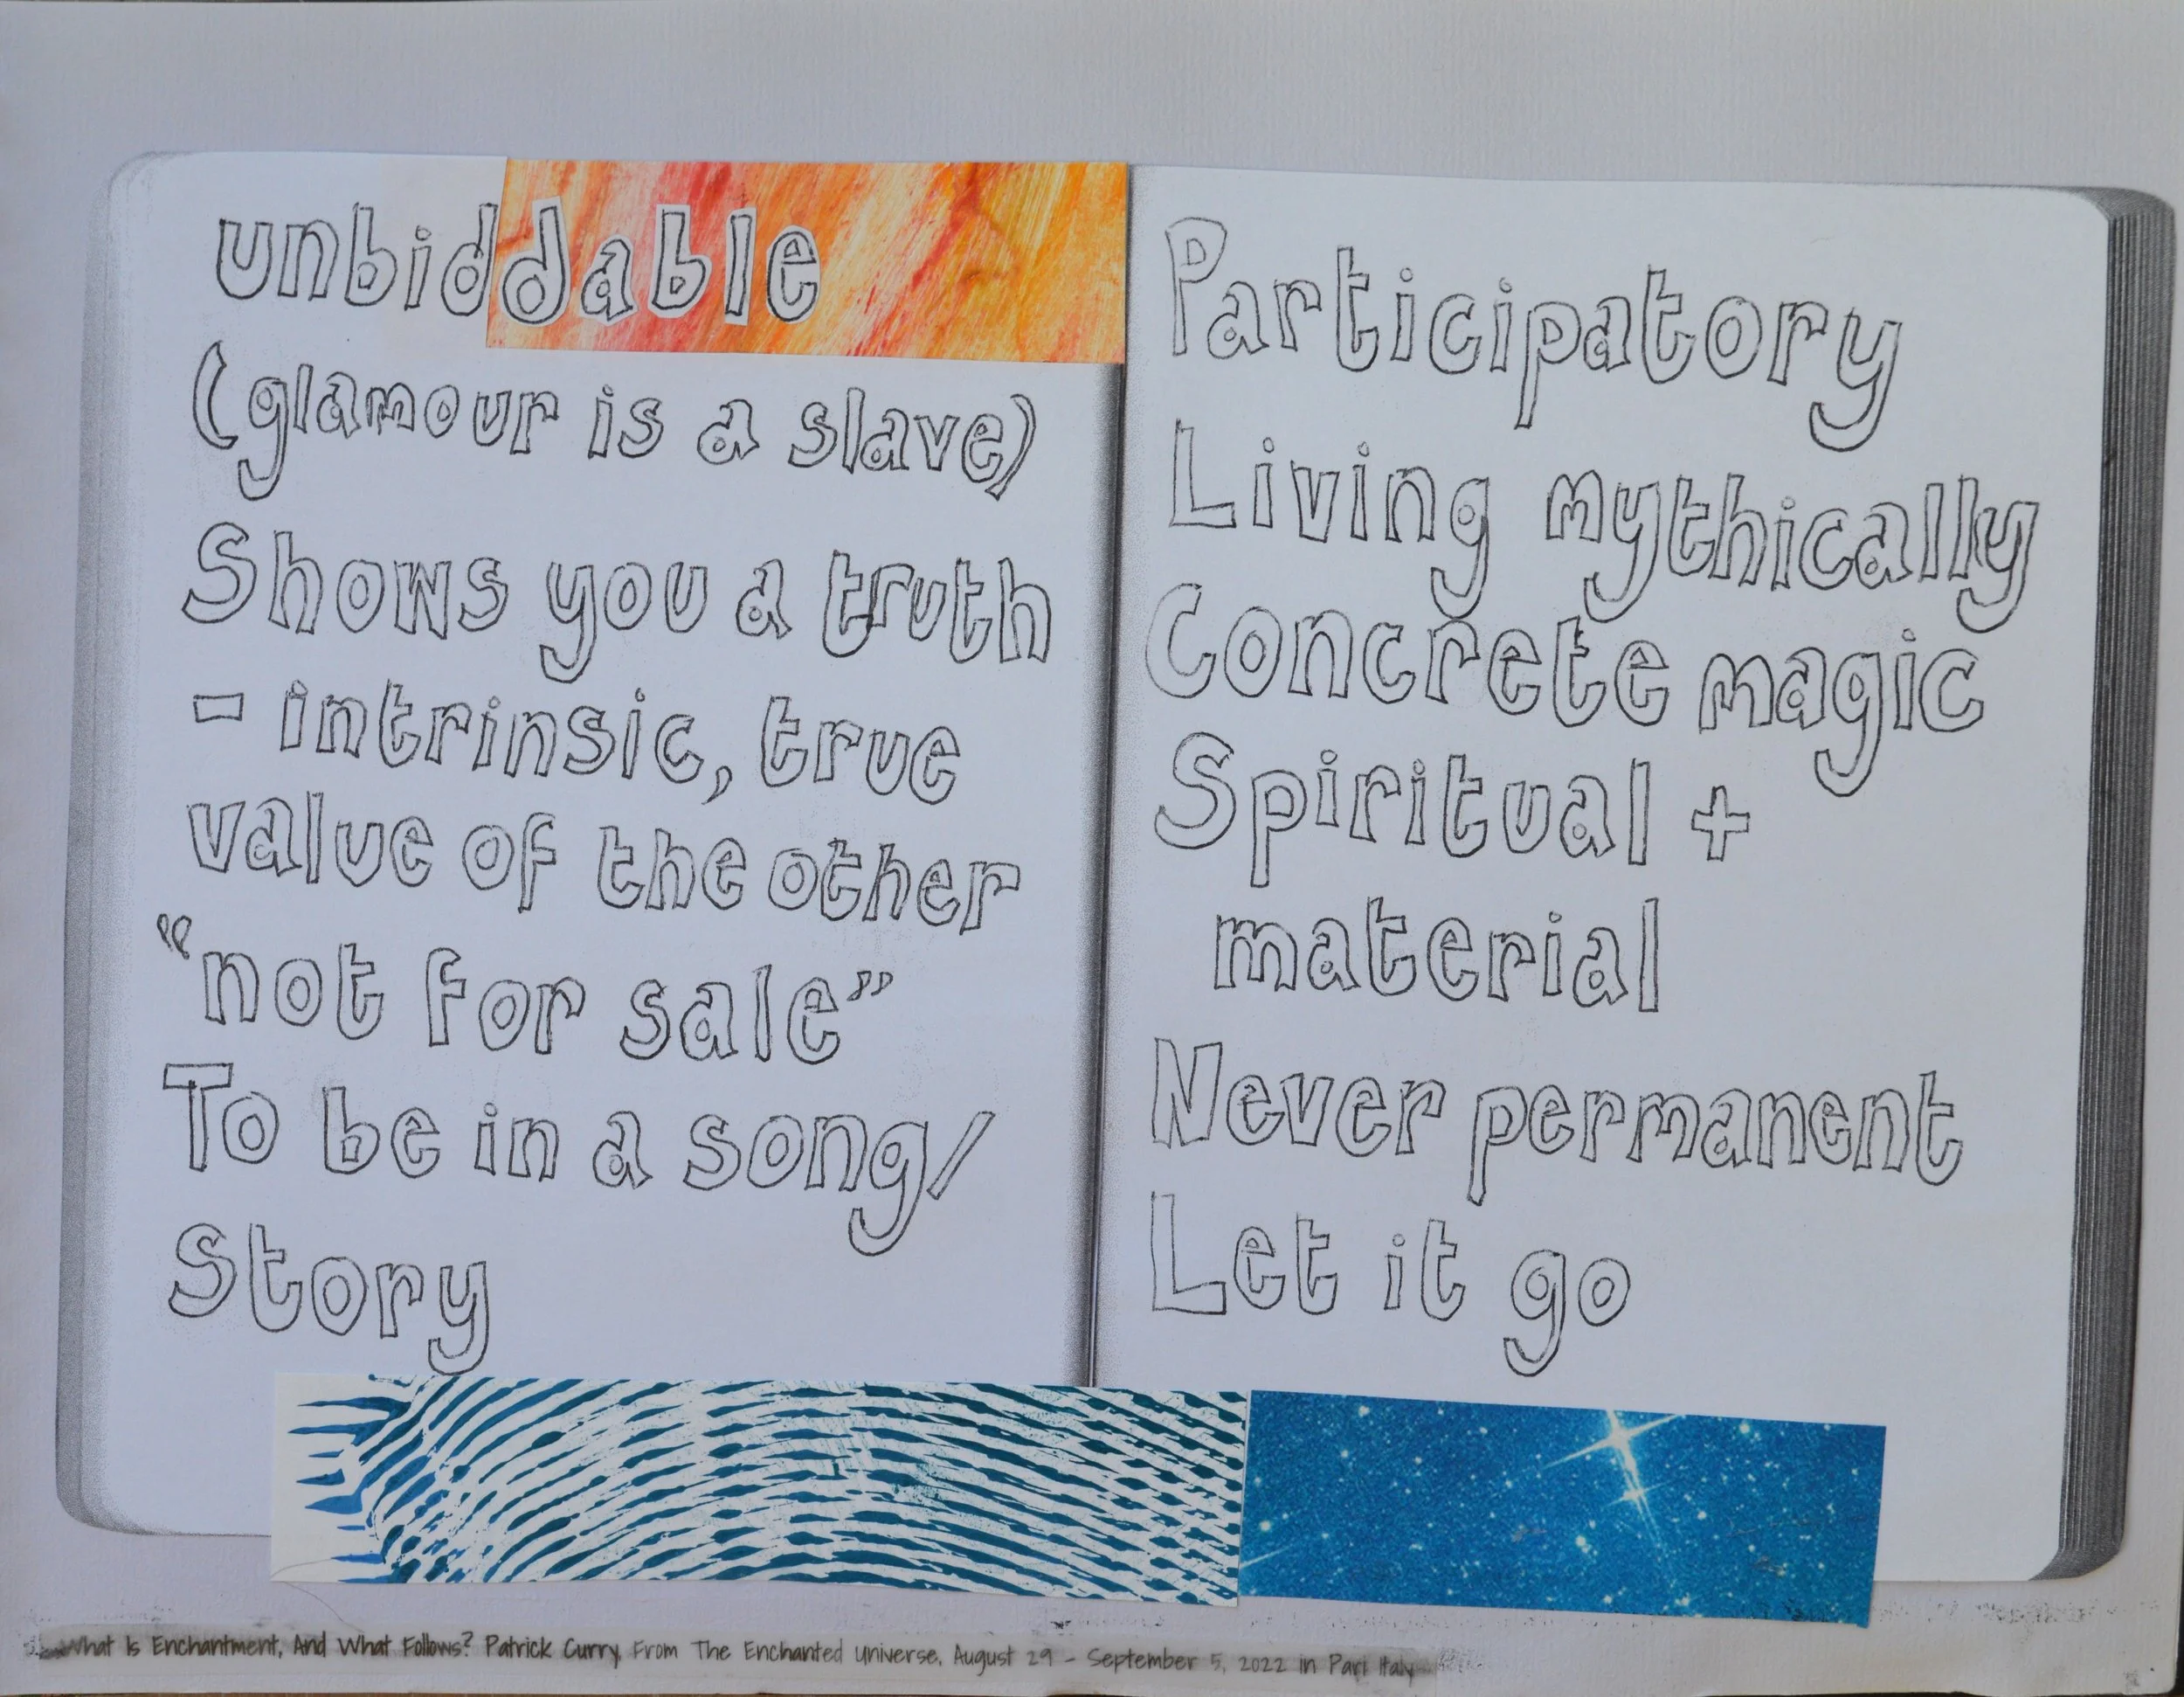 unbiddable
(glamour is a slave)
Shows you a truth
- intrinsic, true
value of the other
"not for sale"
To be in a song/
Story
Participatory
Living mythically
Concrete magic
Spiritual +
material
Never permanent
Let it go
What Is Enchantment, And What Follows? Patrick Curry, From The Enchanted Universe, August 29 - September 5, 2022 in Pari Italy